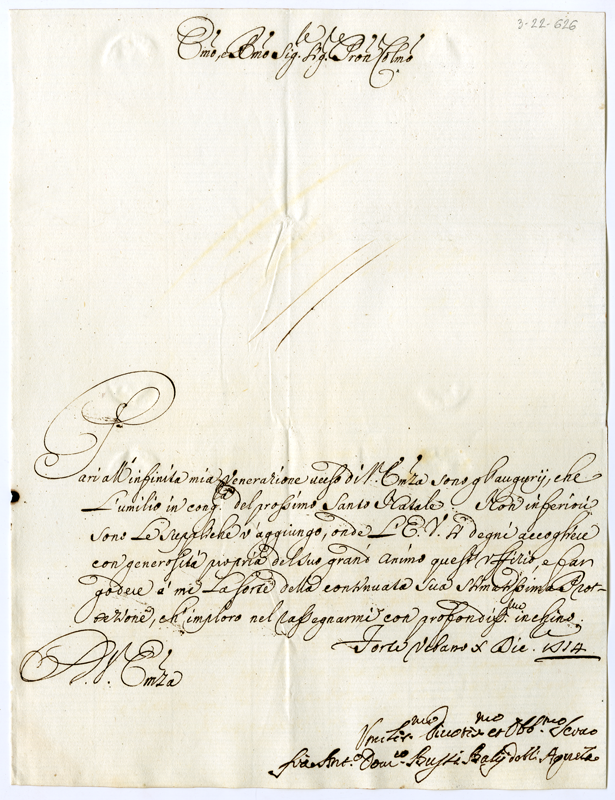 3-22-626
Emo, e Rmo Sig.r Sig.r Pron Colmo
Pari all'infinita mia venerazione verso di V.a Emza sono gl'augurij, che
L'umilio in cong.a del prossimo Santo Natale. Non inferiori
sono le suppliche v'aggiungo, onde L'E. V. si degni accogliere
con generosità propria del suo grand'animo quest'uffizio, e far
godere à me la sorte della continuata sua stimatissima Prot-
tezione, ch'imploro nel rassegnarmi con profondiss.mo inchino.
Dic.
A V. Emza
Umiliss.mo Divotiss.mo et Obb.mo Servo
frà Ant.o Dom.co Bussi Balÿ